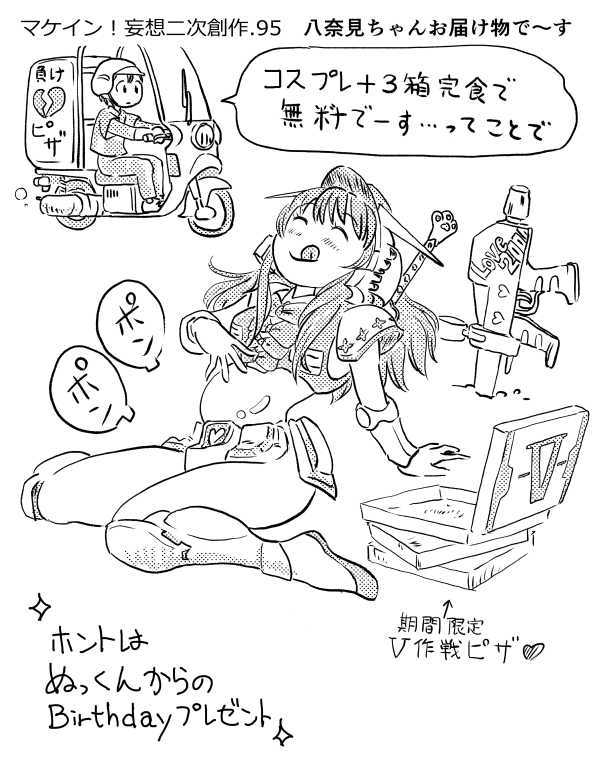 マケイン！妄想二次創作.95　八奈見ちゃんお届け物で～す
負け
ピザ
コスプレ＋３箱完食で
無料でーす…ってことで
LOVE
ポン
ポン
V
↑
期間限定
V作戦ピザ♡
ホントは
ぬっくんからの
Birthdayプレゼント